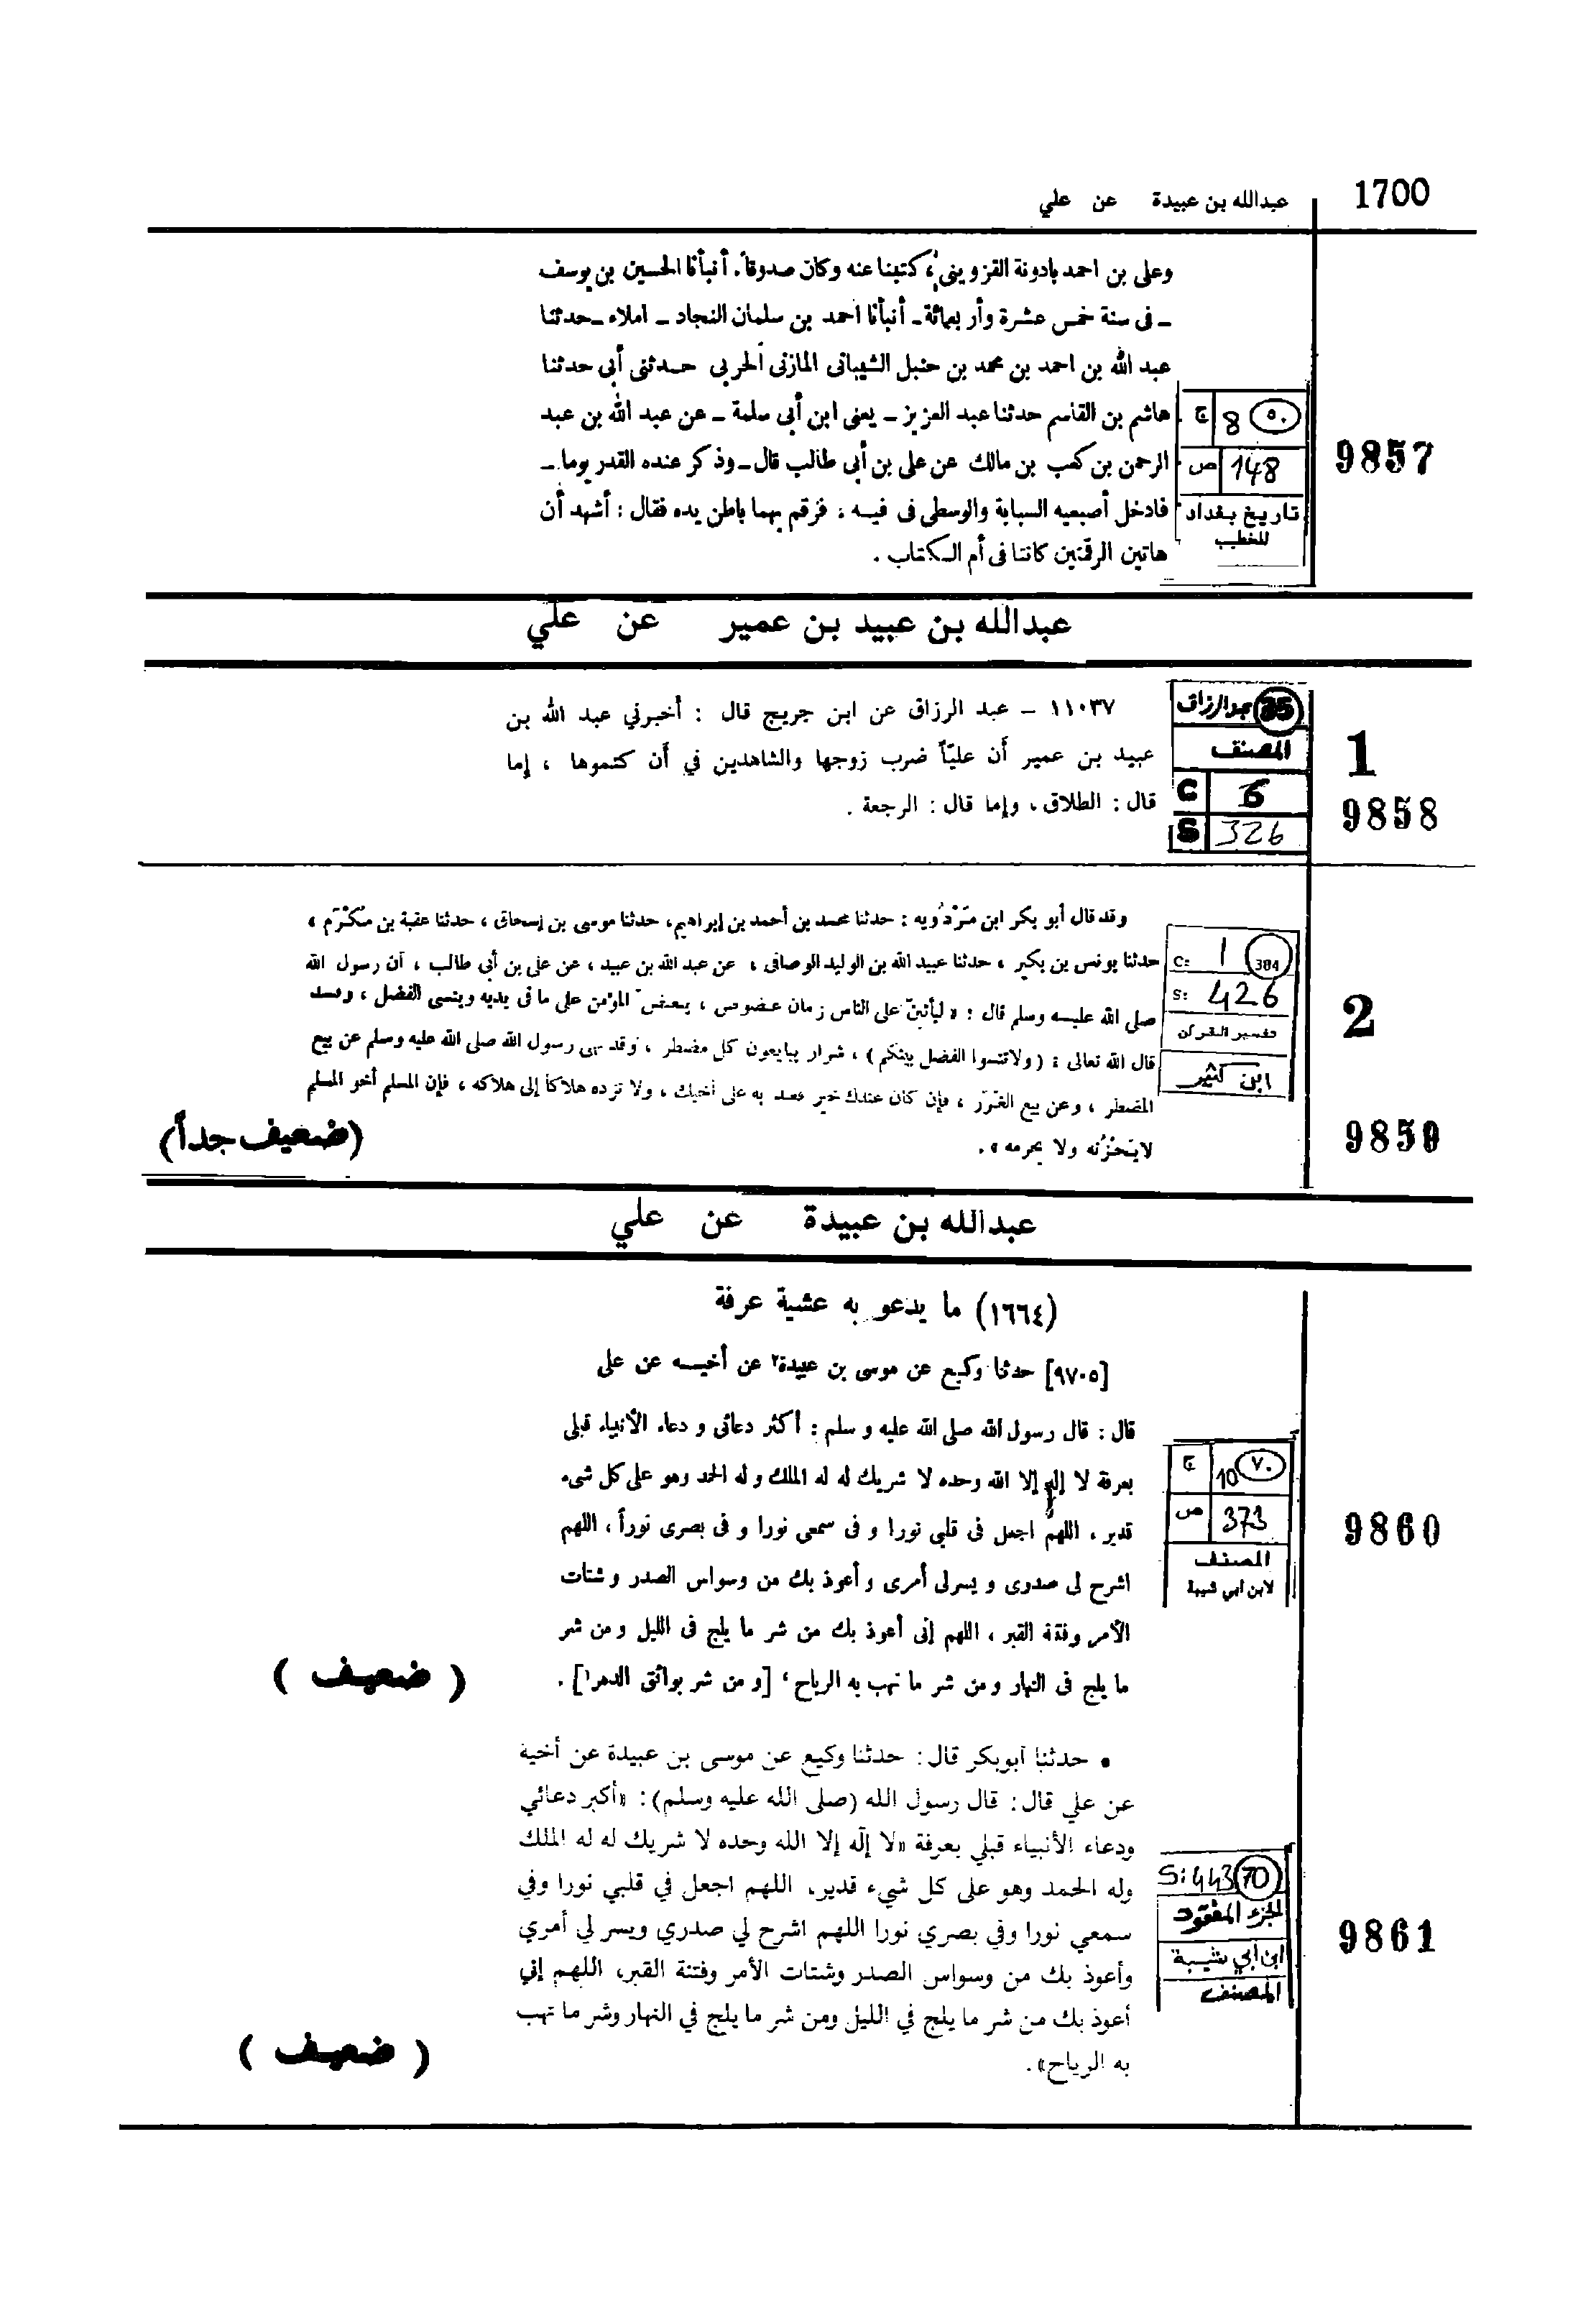 1700
عبدالله بن عبيدة عن علي
وعلى بن احمد بادونة القزوينى، كتبنا عنه وكان صدوقاً. أنبأنا الحسين بن يوسف
ـ فى سنة خمس عشرة وأربعمائة ـ أنبأنا احمد بن سلمان النجاد ـ املاء ـ حدثنا
عبد الله بن احمد بن محمد بن حنبل الشيبانى المازنى الحربى حدثنى أبى حدثنا
هاشم بن القاسم حدثنا عبد العزيز ـ يعنى ابن أبى سلمة ـ عن عبد الله بن عبد
الرحمن بن كعب بن مالك عن على بن أبى طالب قال ـ وذكر عنده القدر يوما ـ
فادخل أصبعيه السبابة والوسطى فى فيه ، فرقم بهما باطن يده فقال : أشهد أن
هاتين الرقمتين كانتا فى أم الكتاب .
ج 8 ٥٠
ص 148
تاريخ بغداد
للخطيب
9857
عبدالله بن عبيد بن عمير عن علي
١١٠٣٧ – عبد الرزاق عن ابن جريج قال : أخبرني عبد الله بن
عبيد بن عمير أن عليّاً ضرب زوجها والشاهدين في أن كتموها ، إما
قال : الطلاق ، وإما قال : الرجعة .
عبدالرزاق 35
المصنف
C 6
S 326
1
9858
وقد قال أبو بكر ابن مَرْدُويه : حدثنا محمد بن أحمد بن إبراهيم، حدثنا موسى بن إسحاق ، حدثنا عقبة بن مُكْرَم ،
حدثنا يونس بن بكير ، حدثنا عبيد الله بن الوليد الوصافى ، عن عبد الله بن عبيد ، عن على بن أبى طالب ، أن رسول الله
صلى الله عليه وسلم قال : « ليأتينّ على الناس زمان عضوض ، يعضّ المؤمن على ما فى يديه وينسى الفضل ، وقد
قال الله تعالى : ( ولا تنسوا الفضل بينكم ) ، شرار يبايعون كل مضطر ، وقد نهى رسول الله صلى الله عليه وسلم عن بيع
المضطر ، وعن بيع الغَرَر ، فإن كان عندك خير فعد به على أخيك ، ولا تزده هلاكاً إلى هلاكه ، فإن المسلم أخو المسلم
لا يَحْزُنه ولا يحرمه » .
(ضعيف جداً)
C: 1 384
S: 426
تفسير القرآن
ابن كثير
2
9859
عبدالله بن عبيدة عن علي
(١٦٦٤) ما يدعو به عشية عرفة
[٩٧٠٥] حدثنا وكيع عن موسى بن عبيدة٢ عن أخيه عن على
قال : قال رسول الله صلى الله عليه و سلم : أكثر دعائى و دعاء الأنبياء قبلى
بعرفة لا إله إلا الله وحده لا شريك له له الملك و له الحمد وهو على كل شىء
قدير ، اللهم اجعل فى قلبى نورا و فى سمعى نورا و فى بصرى نوراً ، اللهم
اشرح لى صدرى و يسرلى أمرى و أعوذ بك من وسواس الصدر و شتات
الأمر وفتنة القبر ، اللهم إنى أعوذ بك من شر ما يلج فى الليل و من شر
ما يلج فى النهار و من شر ما تهب به الرياح ، [و من شر بوائق الدهر١] .
( ضعيف )
ج 10 ٧٠
ص 373
المصنف
لابن ابي شيبة
9860
• حدثنا أبوبكر قال : حدثنا وكيع عن موسى بن عبيدة عن أخية
عن علي قال : قال رسول الله (صلى الله عليه وسلم) : «أكبر دعائي
ودعاء الأنبياء قبلي بعرفة «لا إله إلا الله وحده لا شريك له له الملك
وله الحمد وهو على كل شيء قدير، اللهم اجعل في قلبي نورا وفي
سمعي نورا وفي بصري نورا اللهم اشرح لي صدري ويسر لي أمري
وأعوذ بك من وسواس الصدر وشتات الأمر وفتنة القبر، اللهم إني
أعوذ بك من شر ما يلج في الليل ومن شر ما يلج في النهار وشر ما تهب
به الرياح» .
( ضعيف )
S: 443 70
الجزء المفقود
ابن أبي شيبة
المصنف
9861